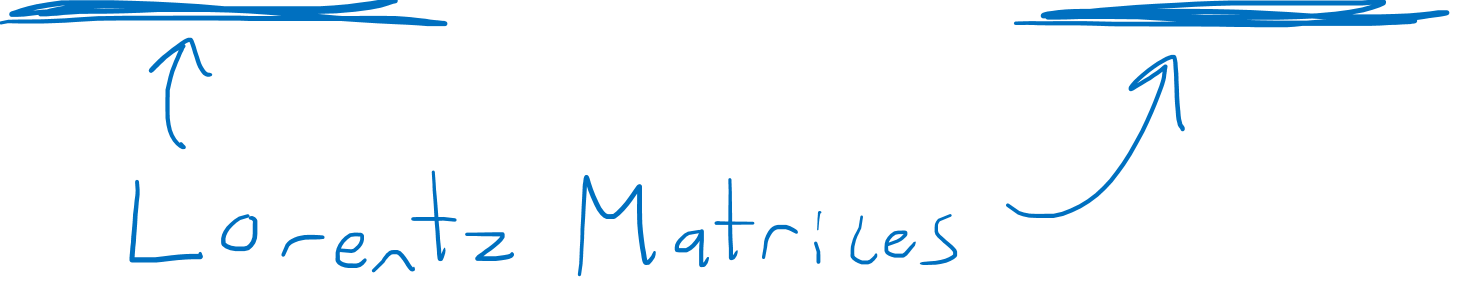 Lorentz Matrices